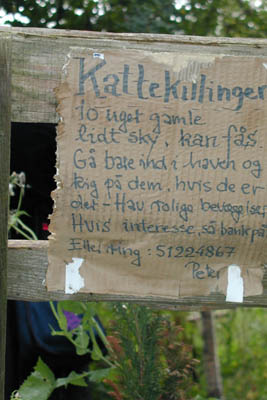 Kattekillinger
10 uger gamle
lidt sky, kan fås.
Gå bare ind i haven og
kig på dem, hvis de er
der - Hav rolige bevægelser
Hvis interesse, så bank på
Eller ring: 51224867
Peter